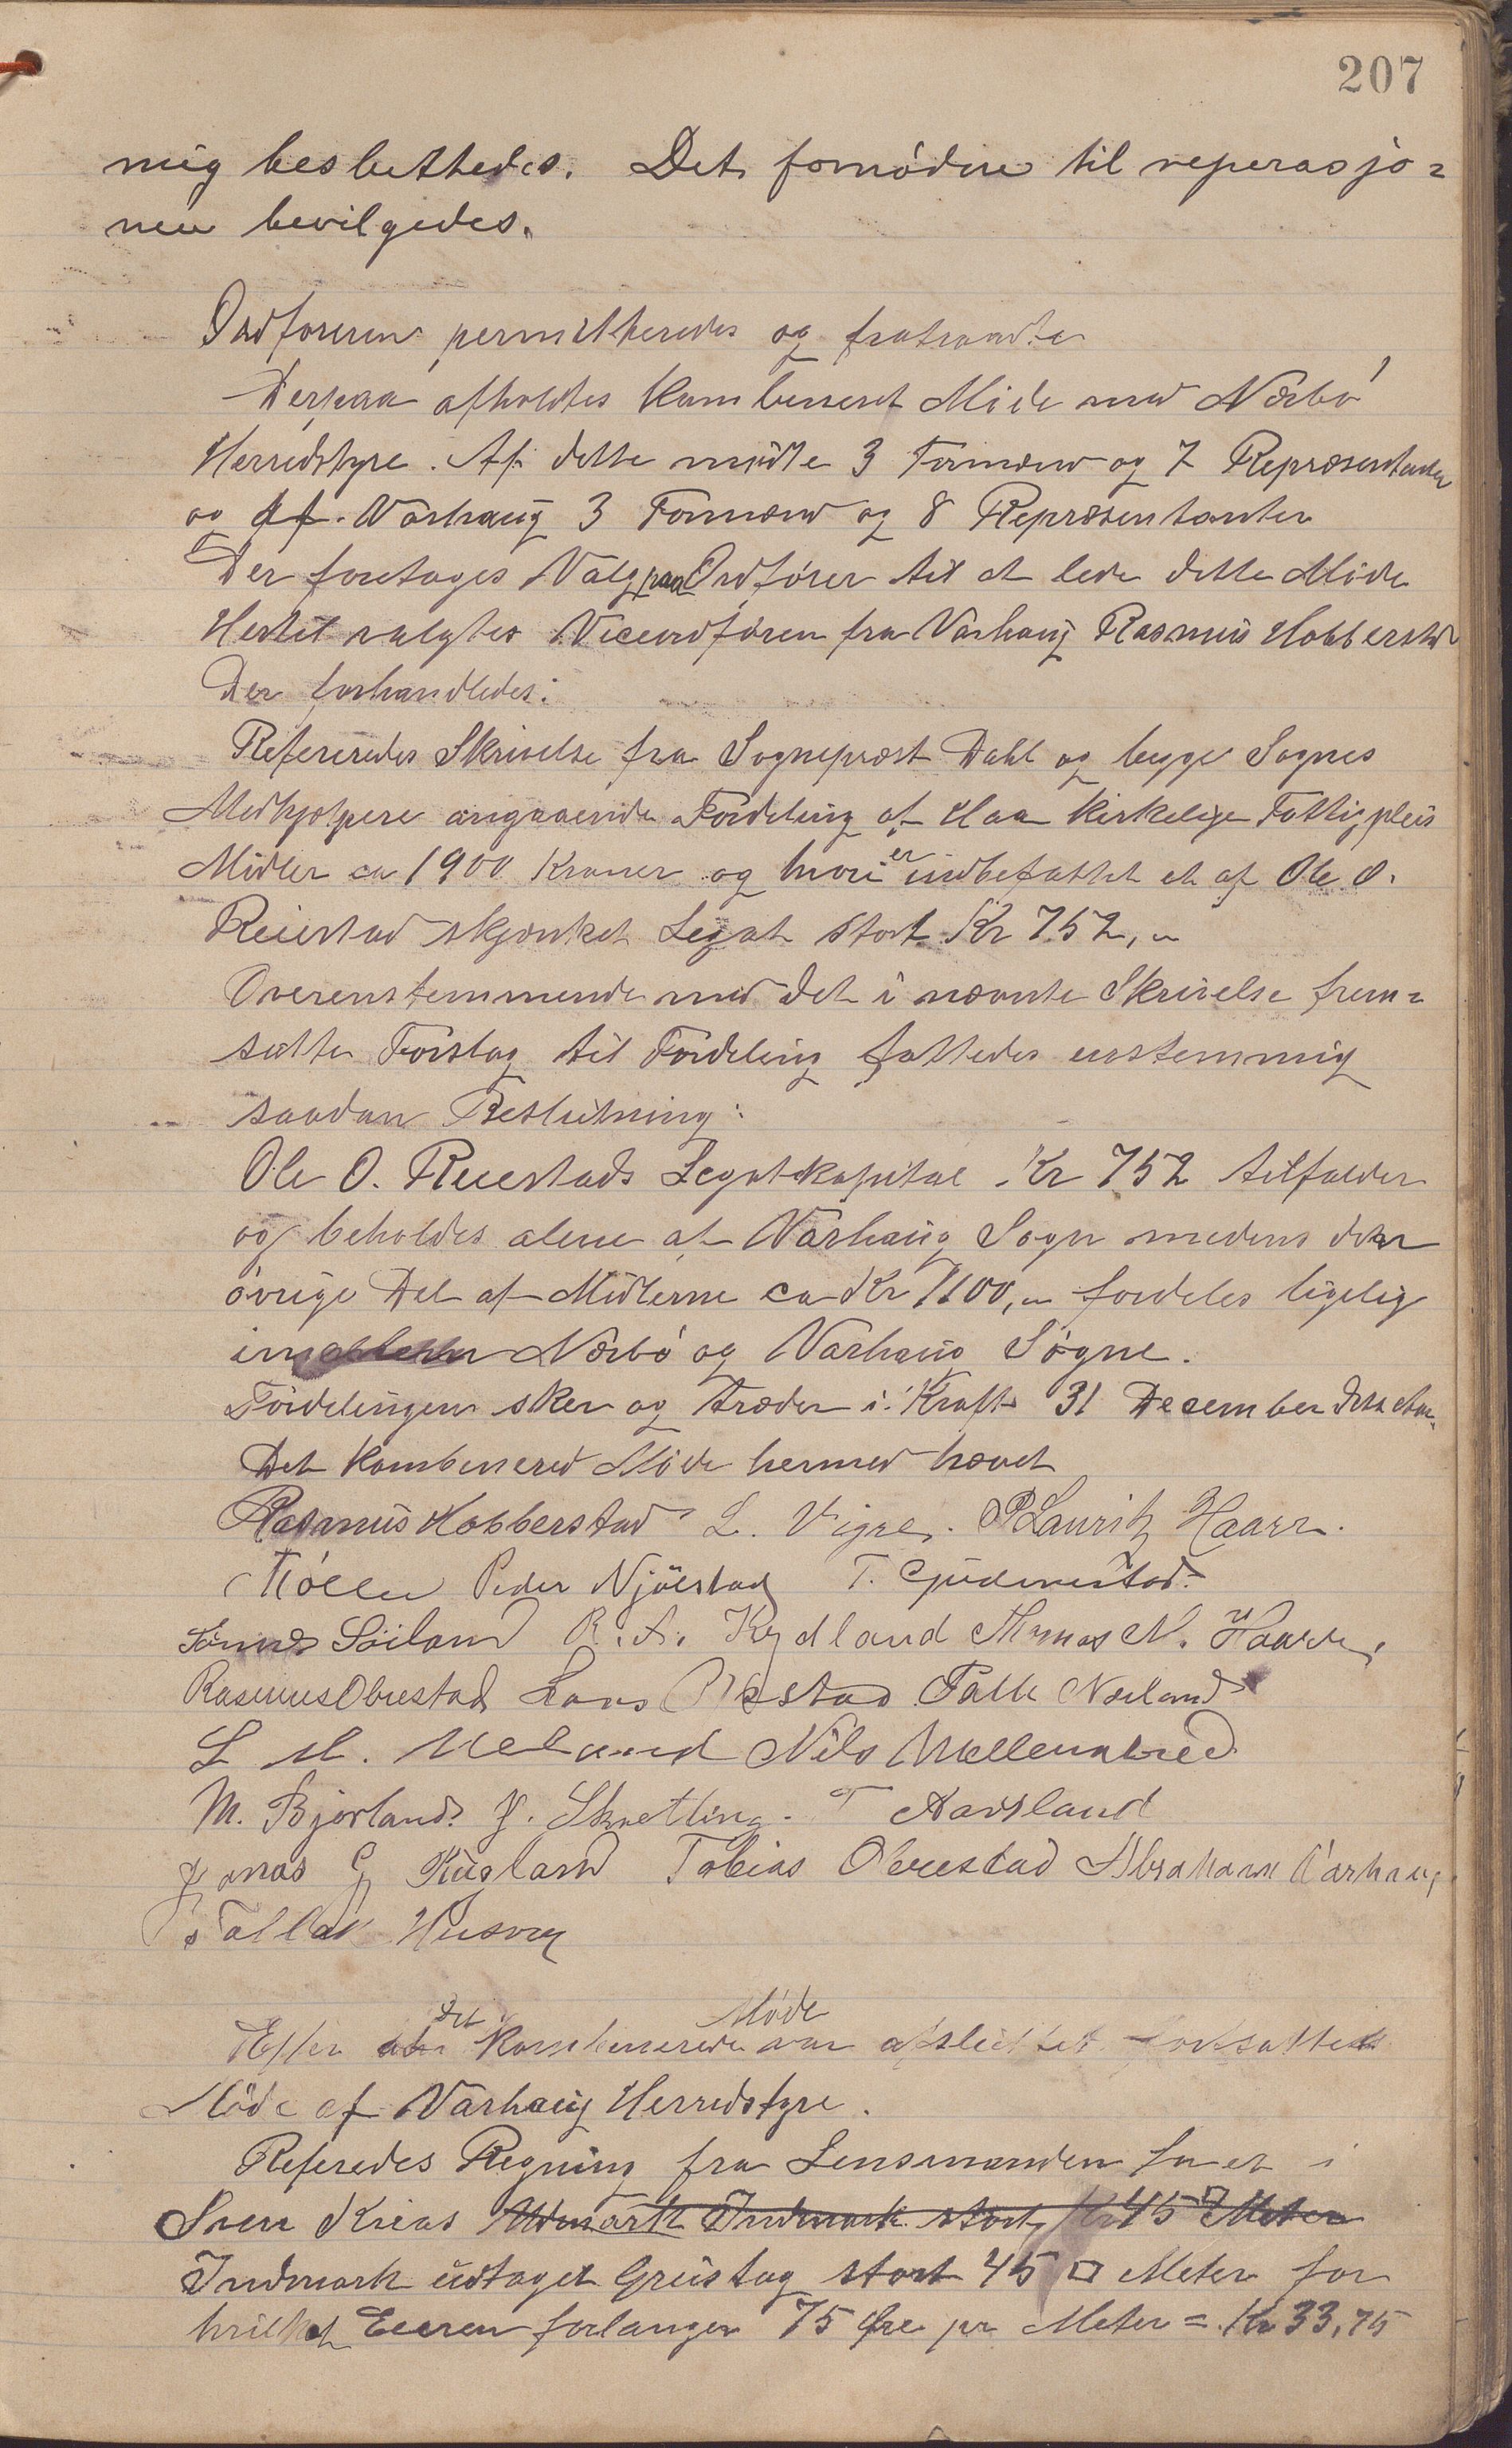 207
mig besluttedes. Det fornødne til reperasjo=
nen bevilgedes.
Ordføreren permitteredes og fratraadte
Derpaa afholdtes Kombineret Møde med Nærbø
Herredstyre. Af dette mødte 3 Formænd og 7 Repræsentanter
og af Varhaug 3 Formænd og 8 Repræsentanter
Der foretages Valg paa Ordfører til at lede dette Møde
Hertil valgtes Viceordføren fra Varhaug Rasmus Hobberstad
Der forhandledes:
Refereredes Skrivelse fra Sogneprest Dahl og begge Sognes
Medhjælpere angaaende Fordeling af Haa Kirkelige Fattigpleis
Midler ca 1900 Kroner og hvori er indbefattet et af Ole O.
Reiestad skjænket Legat stort Kr 752,-
Overenstemmende med det i nævnte Skrivelse frem=
satte Forslag til Fordeling fattedes enstemmig
saadan Beslutning:
Ole O. Reiestads Legatkapital Kr 752 tilfalder
og beholdes alene af Varhaug Sogn medens den
øvrige Del af Midlerne ca Kr 1100,- fordeles ligelig
imellem Nærbø og Varhaug Sogne.
Fordelingen sker og træder i Kraft 31 December dette Aar.
Det Kombinered Møde hermed hævet
Rasmus Hobberstad L. Vigre. P Lauritz Haarr.
Møller Peder Njølstad T. Gudmestad.
Tønnes Søiland R. A. Kydland Thomas N. Haarr,
Rasmus Obrestad Lars Obrestad Falk Nærland
L M. Ueland Nils Mellemstred
M. Bjorland. J. Skretting. T Aarsland
Jonas G Kugland Tobias Obrestad Abraham Varhaug
Tallak Husvæg
Efter det Kombinerede Møde var afsluttet fortsattes
Møde af Varhaug Herredstyre.
Referedes Regning fra Lensmanden for et i
Sven Krias Udmark Indmark stort Kr 45 □ Meter
Indmark udtaget Grustag stort 45 □ Meter for
hvilket Eieren forlanger 75 Øre pr Meter = Kr 33,75